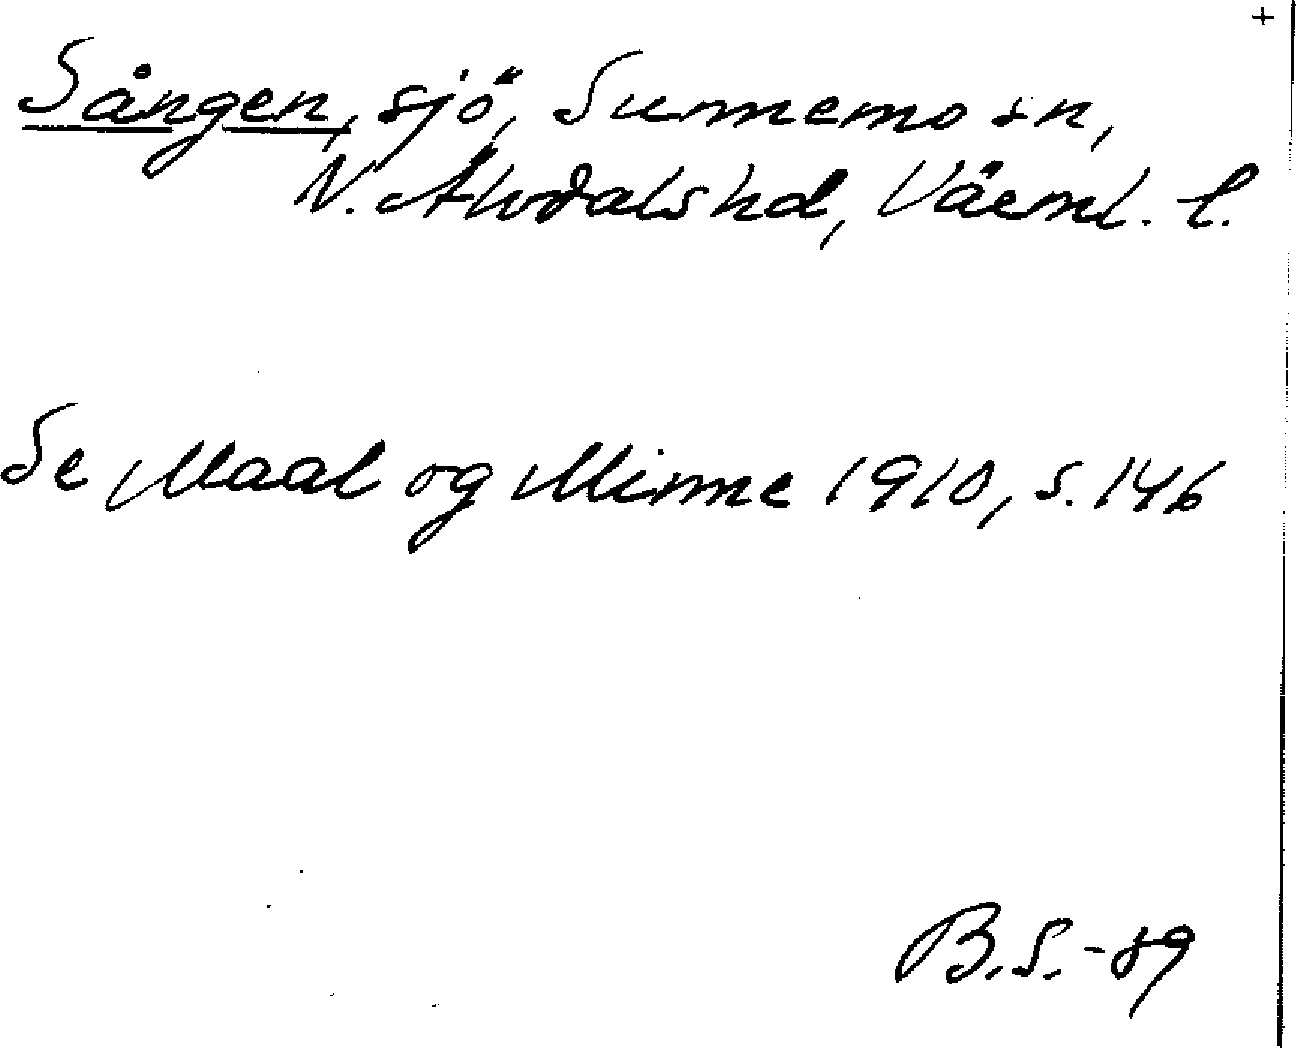 +
Sången, sjö, Sunnemo sn,
N. Älvdals hd, Värml. l.
Se Maal og Minne 1910, s. 146
B.S. -89